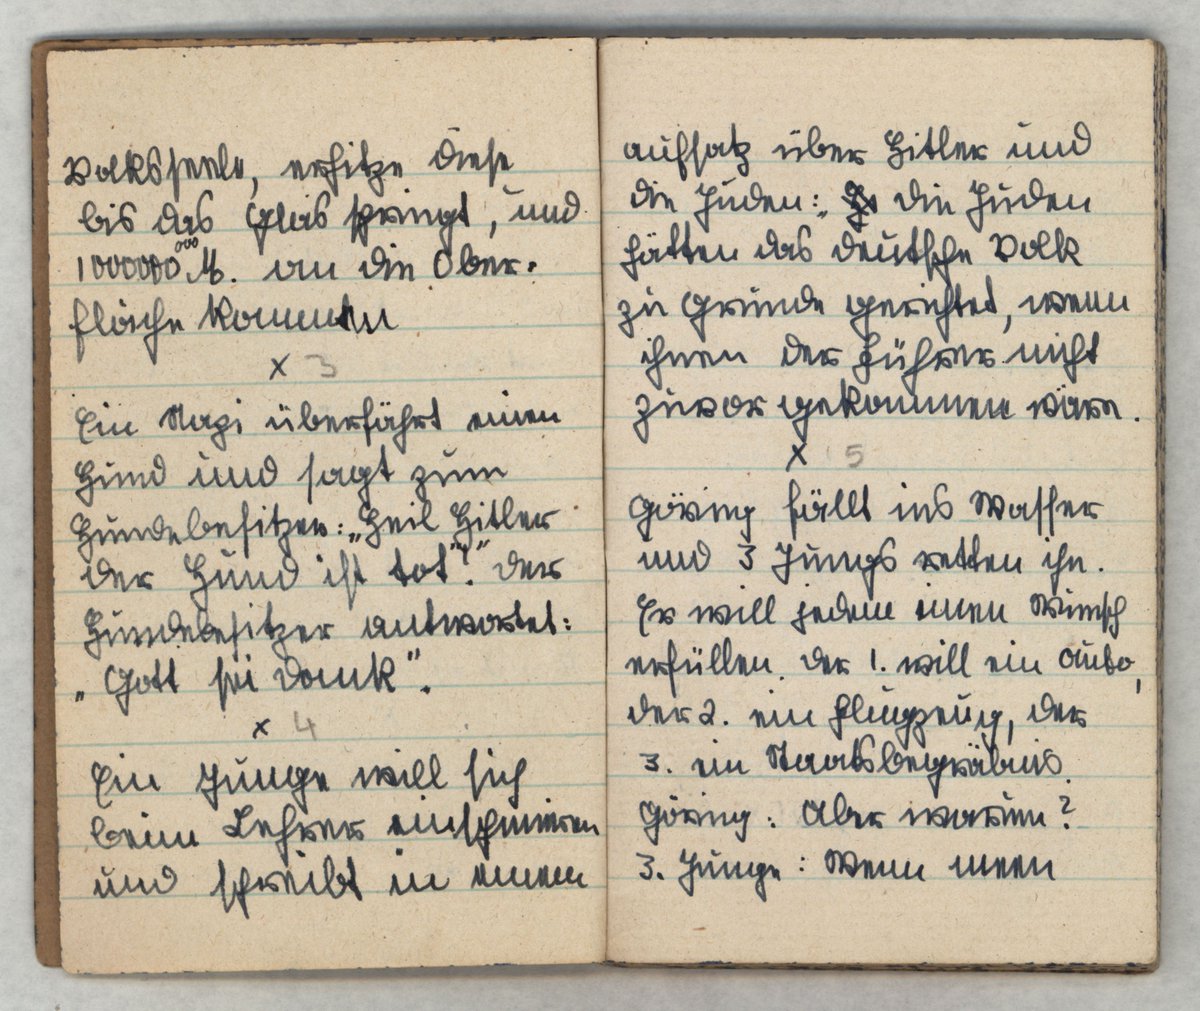 Volksseele, erhitze diese
bis das Glas springt, und
1000000000 M. an die Ober-
fläche kommen
x 3
Ein Nazi überfährt einen
Hund und sagt zum
Hundebesitzer: „Heil Hitler
der Hund ist tot"! Der
Hundebesitzer antwortet:
„Gott sei Dank".
x 4
Ein Junge will sich
beim Lehrer einschmieren
und schreibt in einem
Aufsatz über Hitler und
die Juden: „ die Juden
hätten das deutsche Volk
zu Grunde gerichtet, wenn
ihnen der Führer nicht
zuvor gekommen wäre.
x 5
Göring fällt ins Wasser
und 3 Jungs retten ihn.
Er will jedem einen Wunsch
erfüllen. Der 1. will ein Auto,
der 2. ein Flugzeug, der
3. ein Staatsbegräbnis.
Göring: Aber warum?
3. Junge: Wenn meen